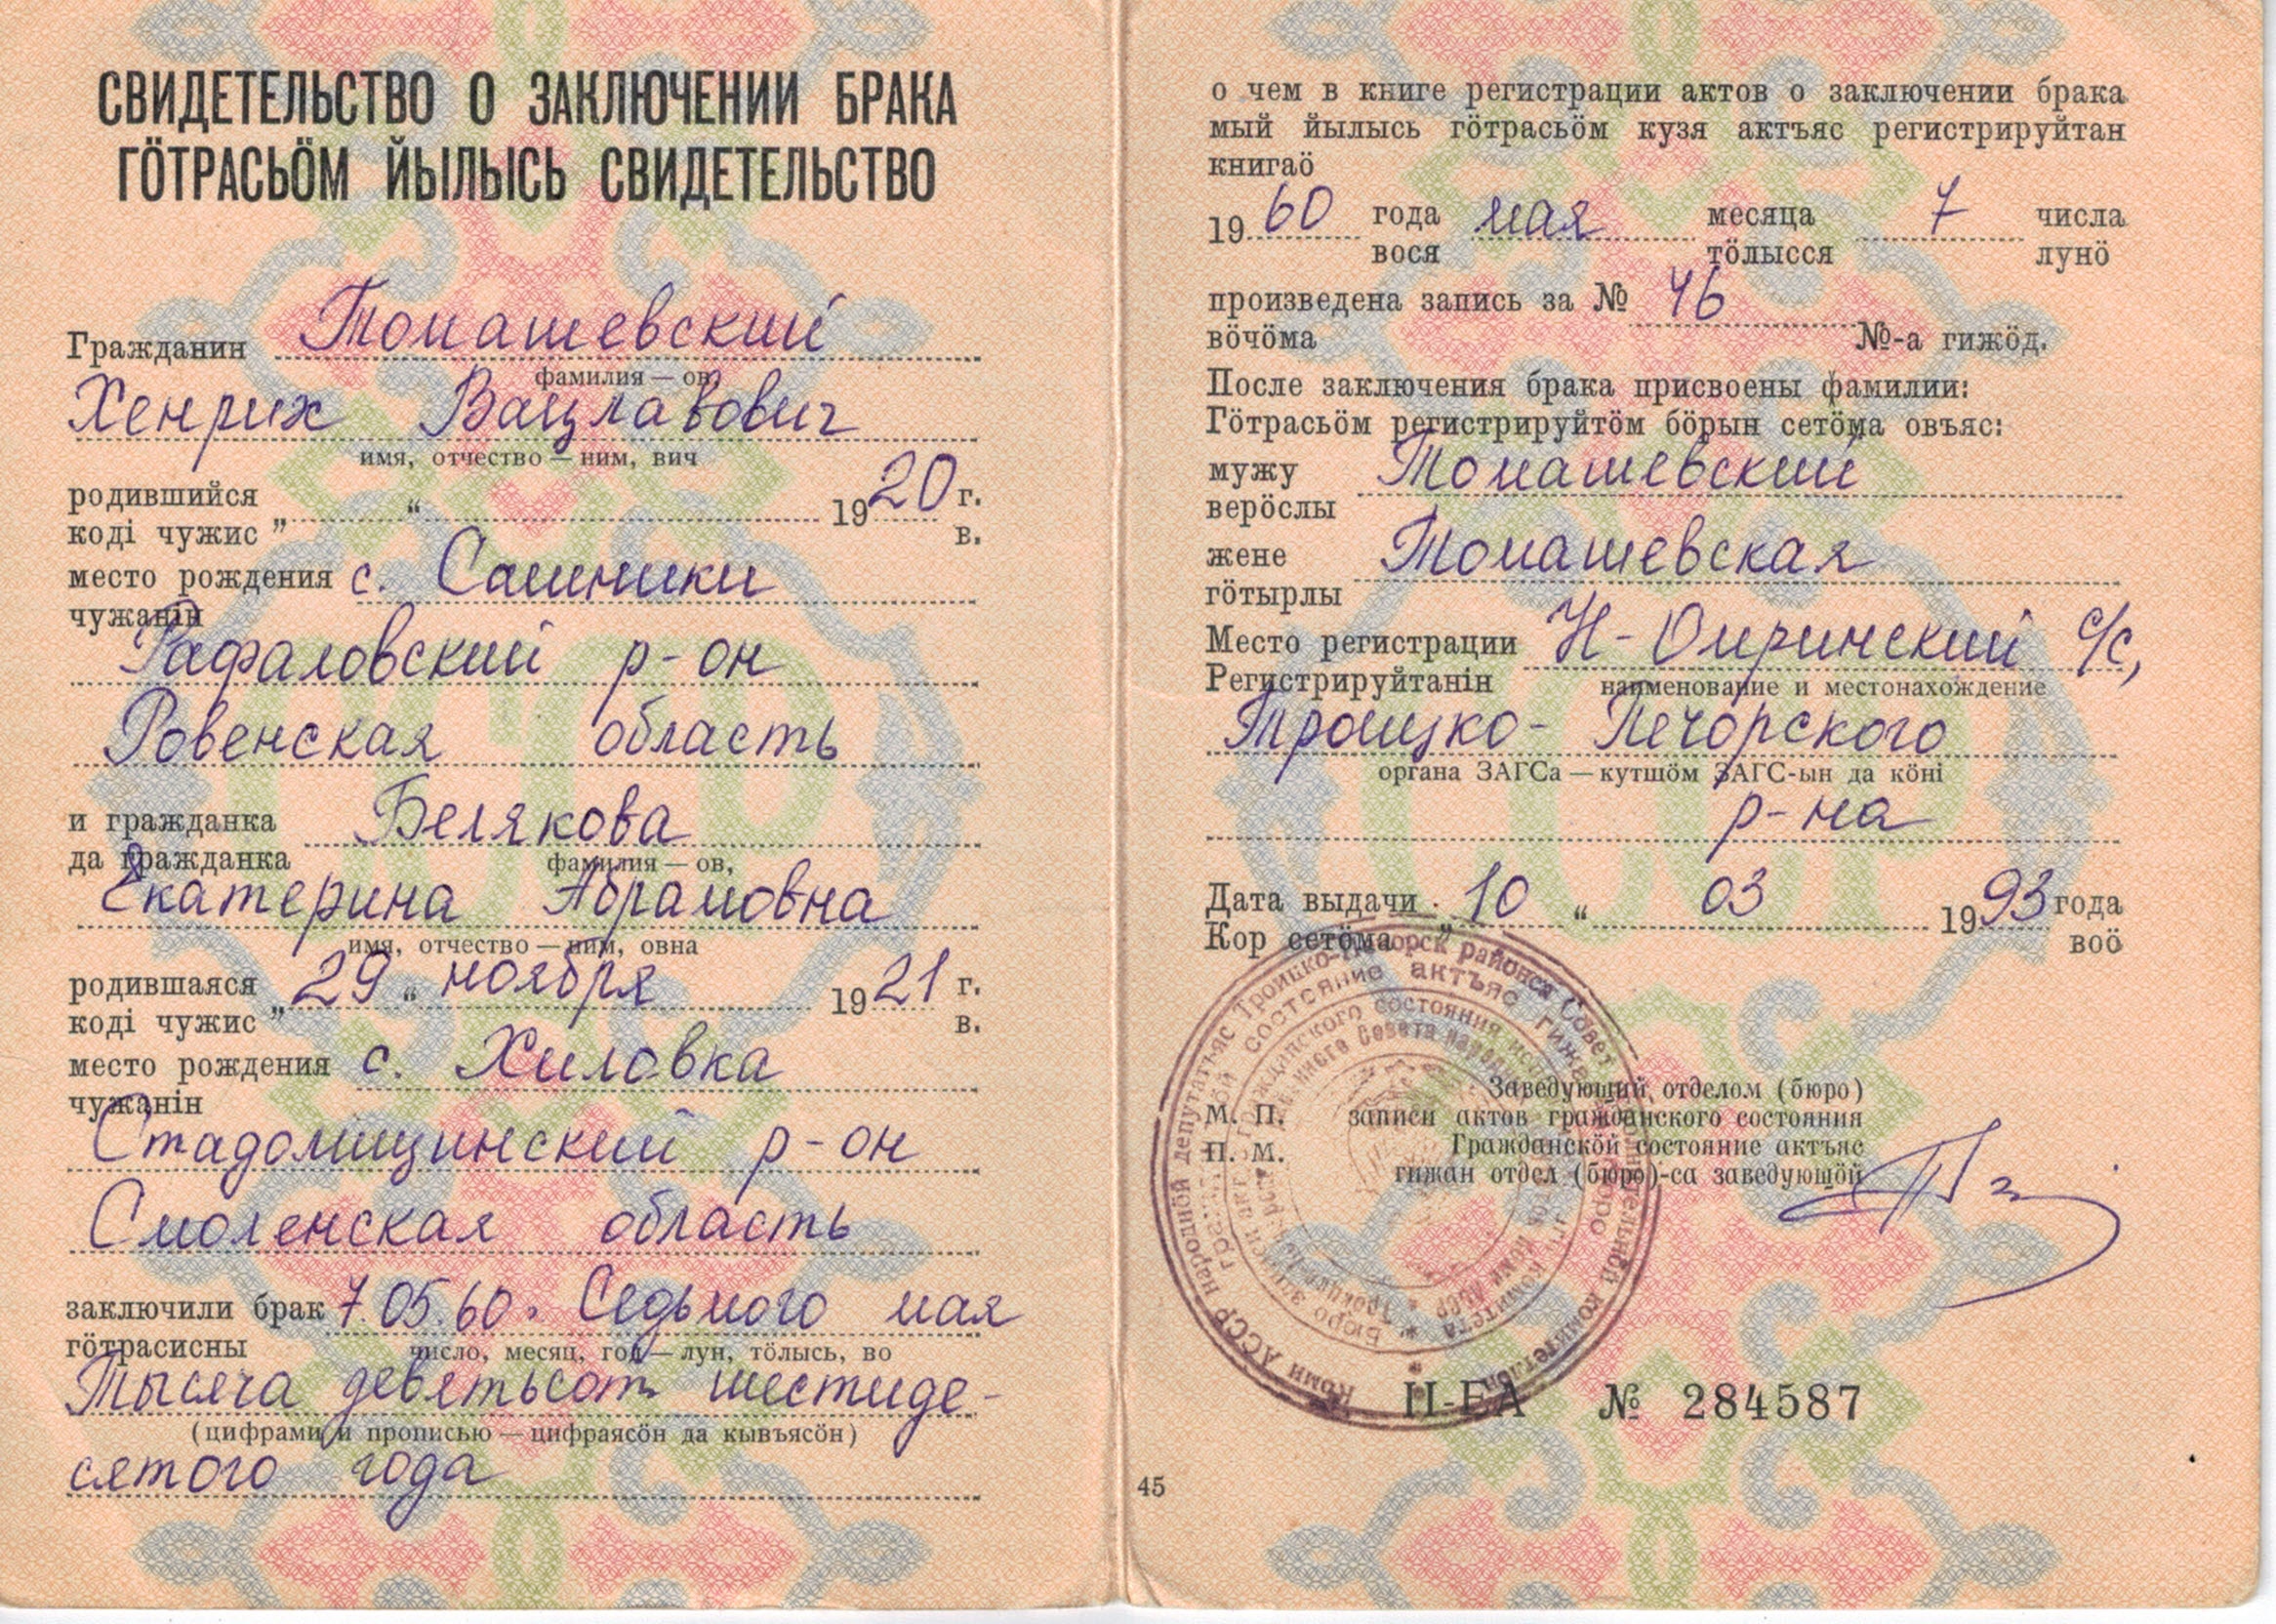 СВИДЕТЕЛЬСТВО О ЗАКЛЮЧЕНИИ БРАКА
ГӦТРАСЬӦМ ЙЫЛЫСЬ СВИДЕТЕЛЬСТВО
Гражданин Томашевский
фамилия — ов,
Хенрих Вацлавович
имя, отчество — ним, вич
родившийся 1920 г.
коді чужис „ “ в.
место рождения с. Сашники
чужанін
Рафаловский р-он
Ровенская область
и гражданка Белякова
да гражданка
фамилия — ов,
Екатерина Абрамовна
имя, отчество — ним, овна
родившаяся 29 ноября 1921 г.
коді чужис „ “ в.
место рождения с. Хиловка
чужанін
Стадомищинский р-он
Смоленская область
заключили брак 7.05.60. Седьмого мая
гӧтрасисны
число, месяц, год — лун, тӧлысь, во
Тысяча девятьсот шестиде-
(цифрами и прописью — цифраясӧн да кывъясӧн)
сятого года
о чем в книге регистрации актов о заключении брака
мый йылысь гӧтрасьӧм кузя актъяс регистрируйтан
книгаӧ
1960 года мая месяца 7 числа
вося тӧлысся лунӧ
произведена запись за № 46
вӧчӧма №-а гижӧд.
После заключения брака присвоены фамилии:
Гӧтрасьӧм регистрируйтӧм бӧрын сетӧма овъяс:
мужу Томашевский
верӧслы
жене Томашевская
гӧтырлы
Место регистрации Н-Омринский с/с,
Регистрируйтанін
наименование и местонахождение
Троицко-Печорского
органа ЗАГСа — кутшӧм ЗАГС-ын да кӧні
р-на
Дата выдачи 10 “ 03 1993 года
Кор сетӧма „ воӧ
Заведующий отделом (бюро)
М. П. записи актов гражданского состояния
Гражданскӧй состояние актъяс
П. М.
гижан отдел (бюро)-са заведующӧй
II-ЕА № 284587
45